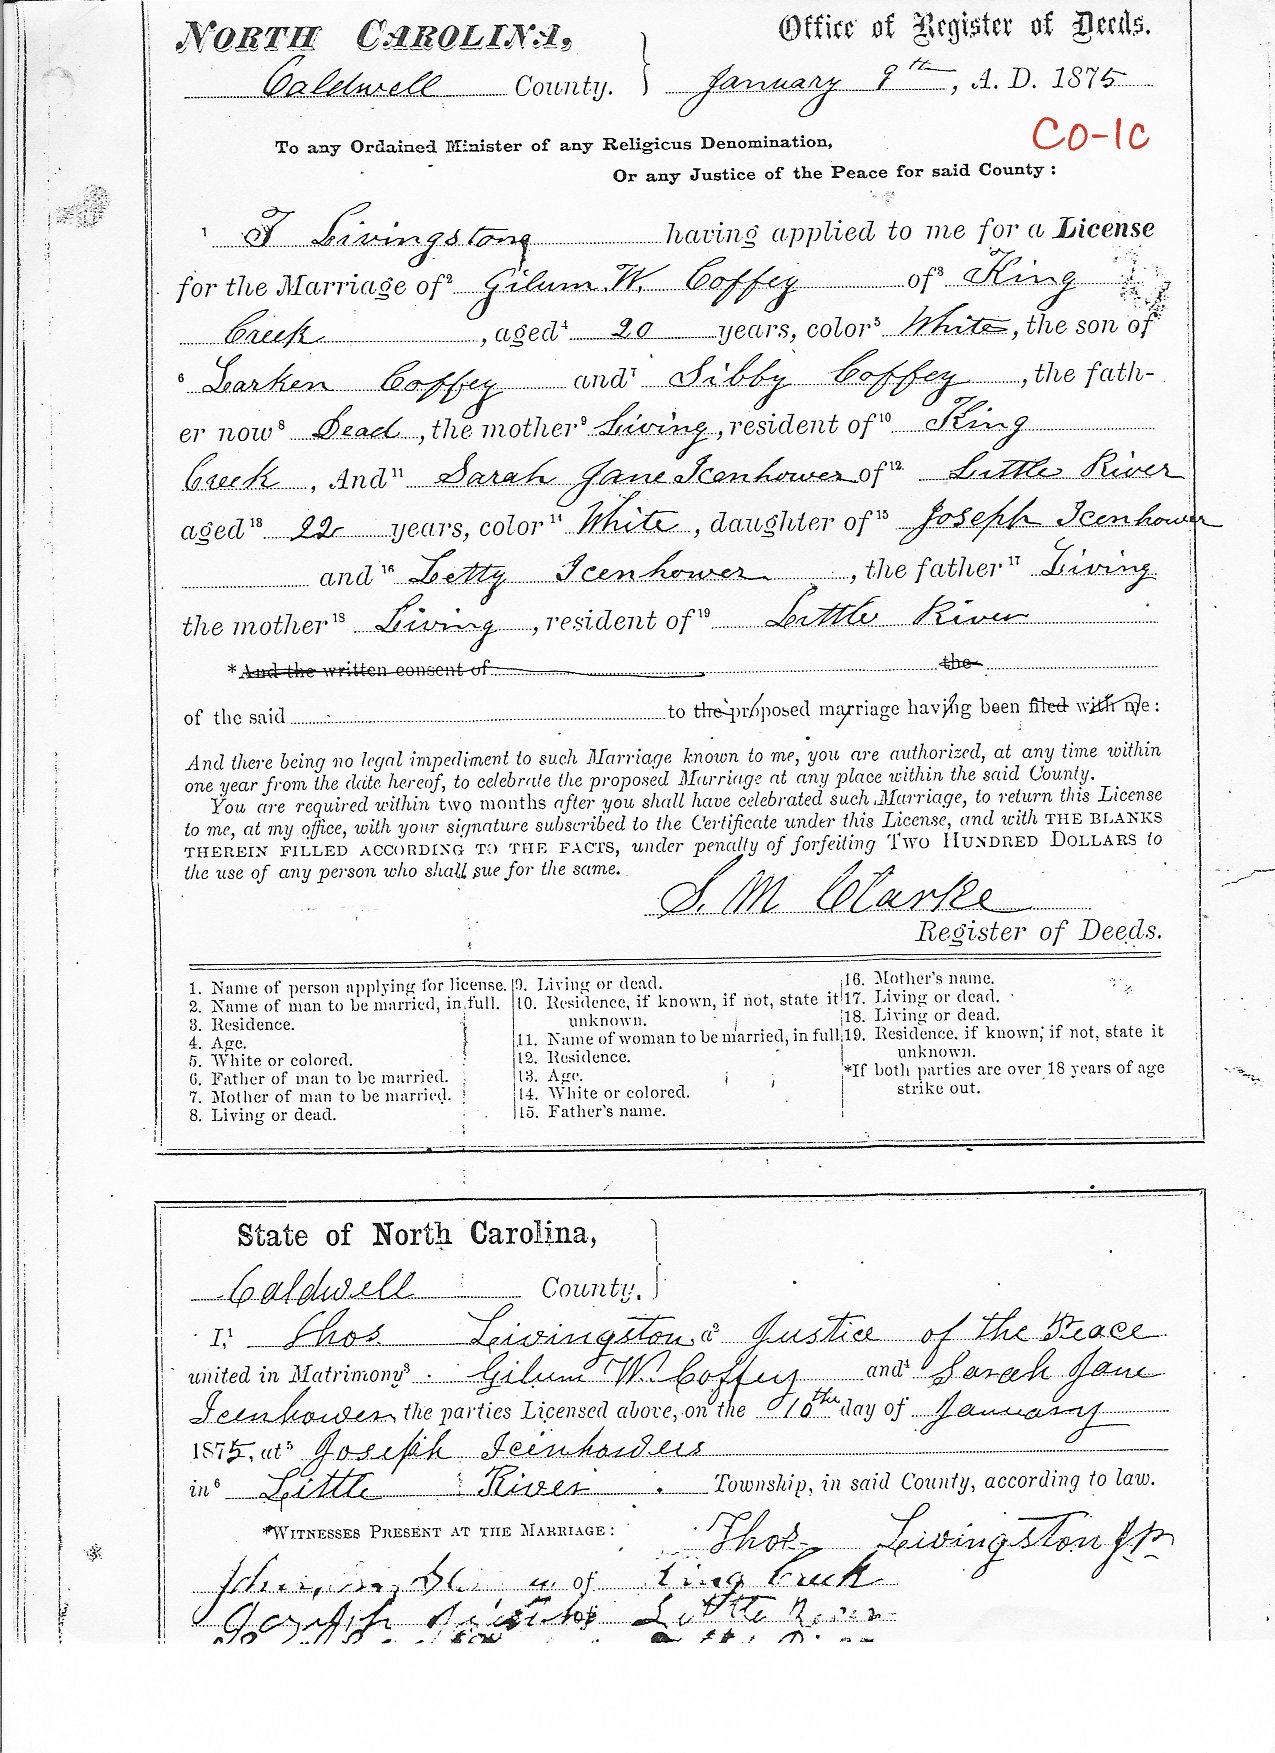 NORTH CAROLINA,
Office of Register of Deeds.
Caldwell County.
January 9th, A. D. 1875
CO-1C
To any Ordained Minister of any Religious Denomination,
Or any Justice of the Peace for said County:
1 T Livingstone having applied to me for a License
for the Marriage of2 Gilum. W. Coffey of3 King
Creek, aged4 20 years, color5 White, the son of
6 Larken Coffey and7 Sibby Coffey, the fath-
er now8 Dead, the mother9 Living, resident of10 King
Creek, And11 Sarah Jane Icenhower of12. Little River
aged13 22 years, color14 White, daughter of15 Joseph Icenhower
and16 Letty Icenhower, the father17 Living
the mother18 Living, resident of19 Little River
*And the written consent of the
of the said to the proposed marriage having been filed with me:
And there being no legal impediment to such Marriage known to me, you are authorized, at any time within
one year from the date hereof, to celebrate the proposed Marriage at any place within the said County.
You are required within two months after you shall have celebrated such Marriage, to return this License
to me, at my office, with your signature subscribed to the Certificate under this License, and with THE BLANKS
THEREIN FILLED ACCORDING TO THE FACTS, under penalty of forfeiting TWO HUNDRED DOLLARS to
the use of any person who shall sue for the same.
S. M Clarke
Register of Deeds.
1. Name of person applying for license.
2. Name of man to be married, in full.
3. Residence.
4. Age.
5. White or colored.
6. Father of man to be married.
7. Mother of man to be married.
8. Living or dead.
9. Living or dead.
10. Residence, if known, if not, state it
unknown.
11. Name of woman to be married, in full.
12. Residence.
13. Age.
14. White or colored.
15. Father's name.
16. Mother's name.
17. Living or dead.
18. Living or dead.
19. Residence, if known; if not, state it
unknown.
*If both parties are over 18 years of age
strike out.
State of North Carolina,
Caldwell County,
I,1 Thos Livingston, a2 Justice of the Peace
united in Matrimony3 Gilum W. Coffey and4 Sarah Jane
Icenhower, the parties Licensed above, on the 10th day of January
1875, at5 Joseph Icenhowers
in6 Little River Township, in said County, according to law.
*WITNESSES PRESENT AT THE MARRIAGE:
Thos Livingston Jp
of King Creek
Joseph of Little River